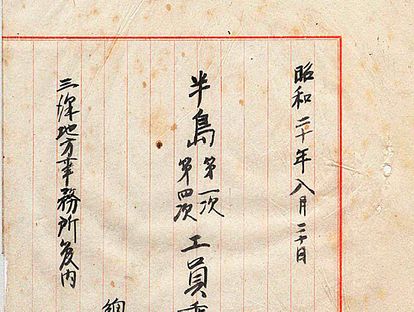 昭和二十年八月二十日
半島第一次第四次工員
三條地方事務所管内